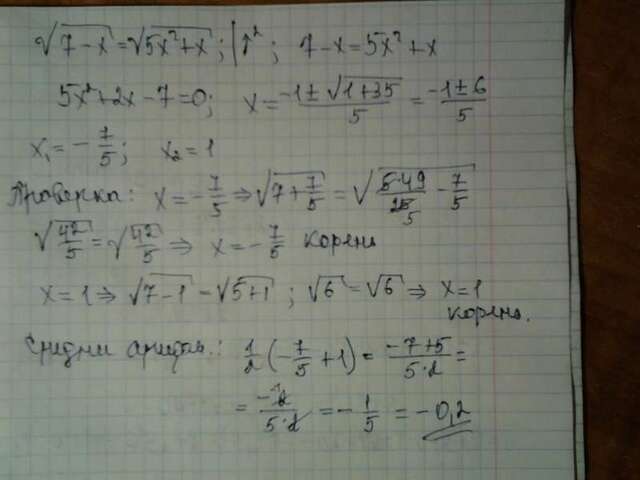 √7-x = √5x²+x ; |↑² ; 7-x = 5x²+x
5x²+2x-7=0; x = (-1±√1+35)/5 = (-1±6)/5
x₁ = -7/5; x₂ = 1
Проверка: x = -7/5 ⇒ √7+7/5 = √5·49/25 5 - 7/5
√42/5 = √42/5 ⇒ x = -7/5 корень
x = 1 ⇒ √7-1 = √5+1 ; √6 = √6 ⇒ x=1
корень.
Средни арифм.: 1/2 (-7/5 + 1) = (-7+5)/(5·2) =
= -2/(5·2) = -1/5 = -0,2